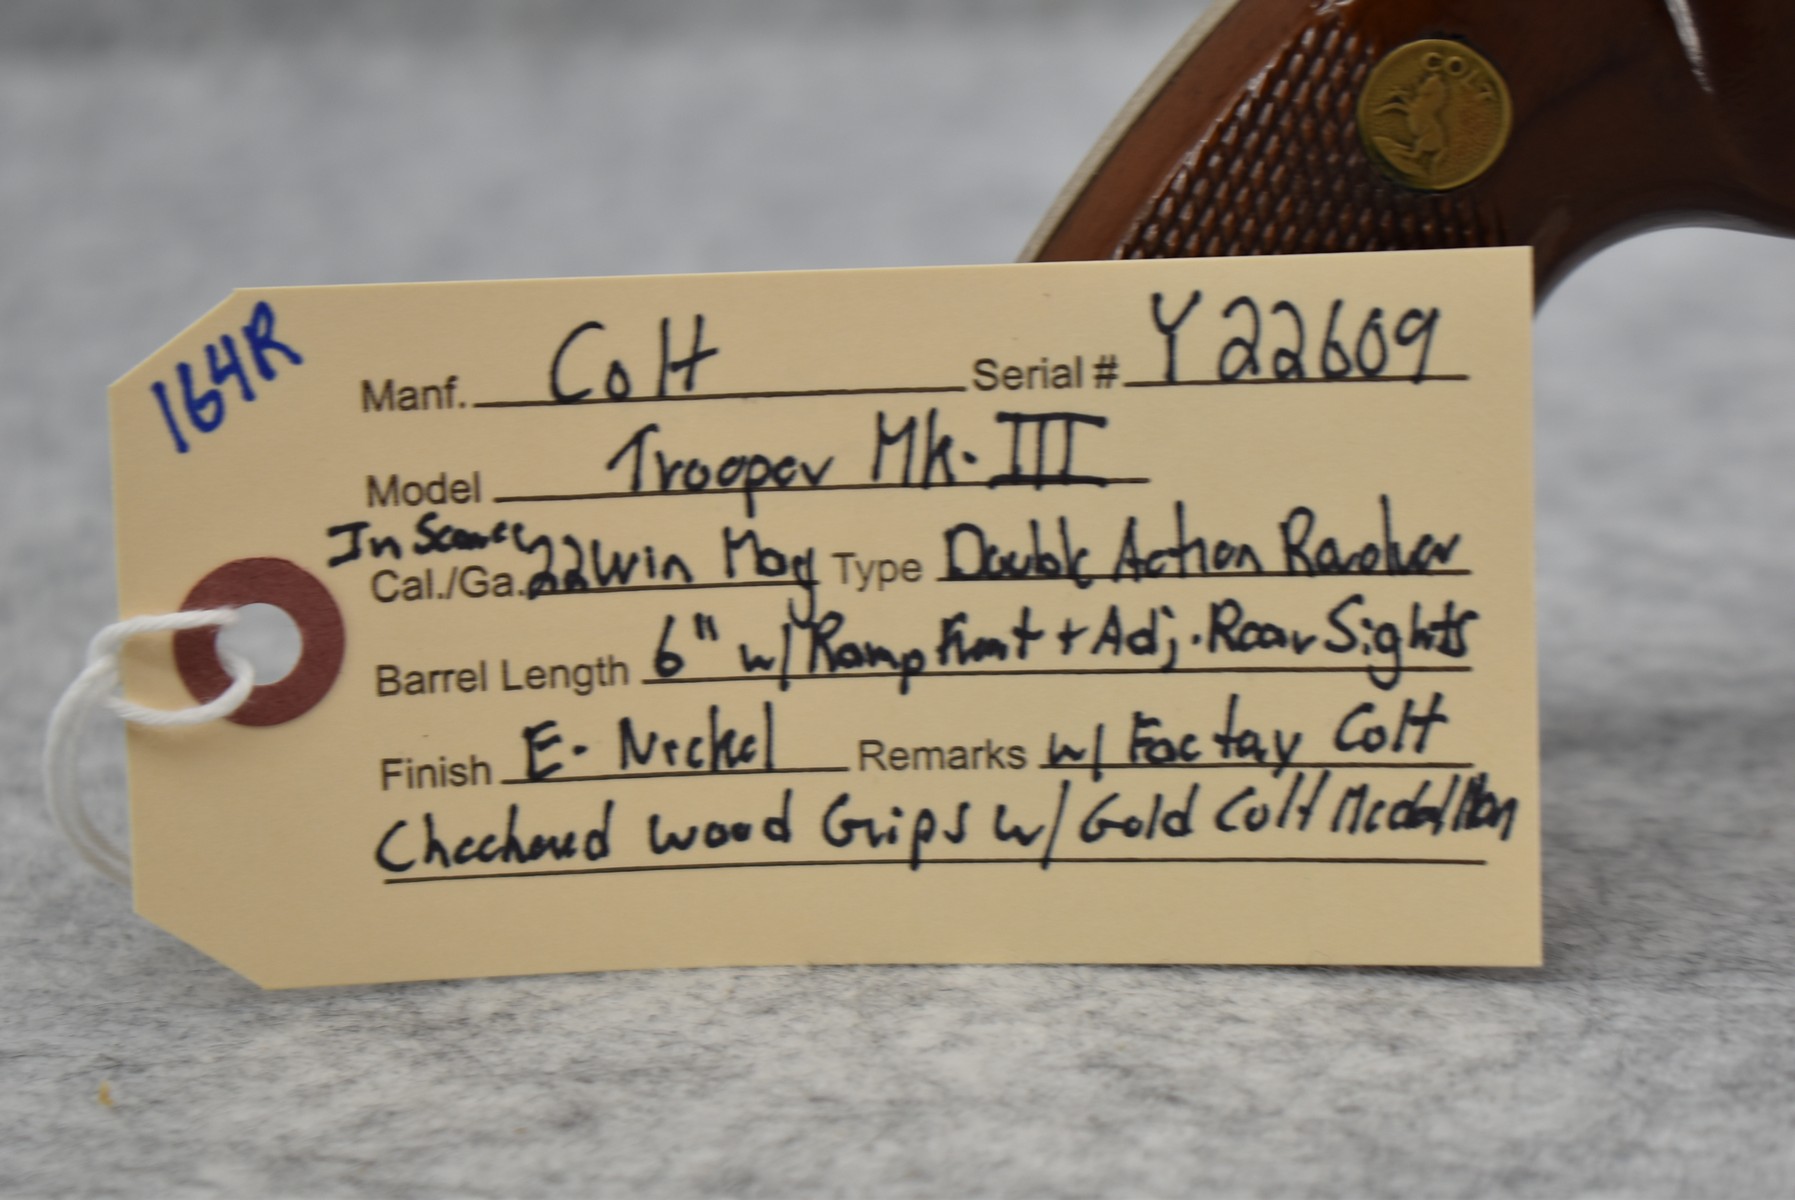 COLT
164R
Manf. Colt Serial # Y22609
Model Trooper Mk. III
In Scarce
Cal./Ga. 22 Win Mag Type Double Action Revolver
Barrel Length 6" w/ Ramp Front + Adj. Rear Sights
Finish E. Nickel Remarks w/ Factory Colt
Checkered Wood Grips w/ Gold Colt Medallion